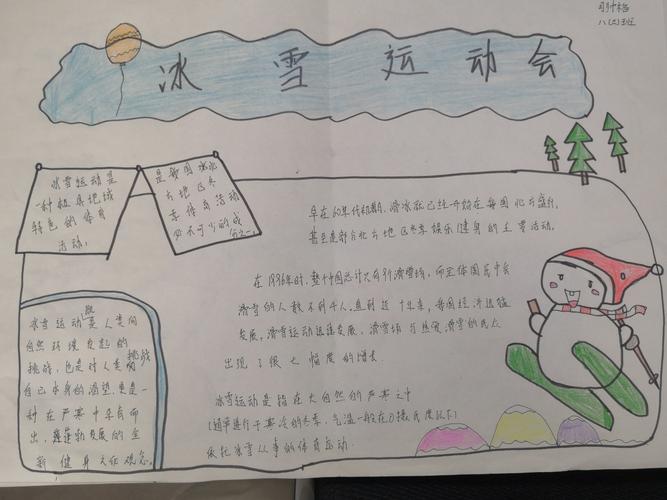 八(二)班
冰雪运动会
冰雪运动是
一种极具地域
特色的体育
活动,
是我国冰
方地区冬
季体育活动
必不可少的成
分之一。
早在60年代初期,滑冰就已经开始在我国北方盛行,
甚至是部分北方地区冬季娱乐健身的主要活动。
在1996年时,整个中国总计只有9滑雪场,而在体国民中会
滑雪的人数不到千人,直到近十年来,我国经济迅猛
发展,滑雪运动迅速发展,滑雪场与热爱滑雪的民众
出现了很大幅度的增长
冰雪运动既是人类向
自然环境发起的
挑战,也是对人类挑战
自己本身的渴望,更是一
种在严寒中孕育而
出,蓬蓬勃发展的全
新健身文化观念。
冰雪运动是指在大自然的严寒之中
(通常进行于寒冷的冬季,气温一般在0摄氏度以下)
依托冰雪从事的体育运动